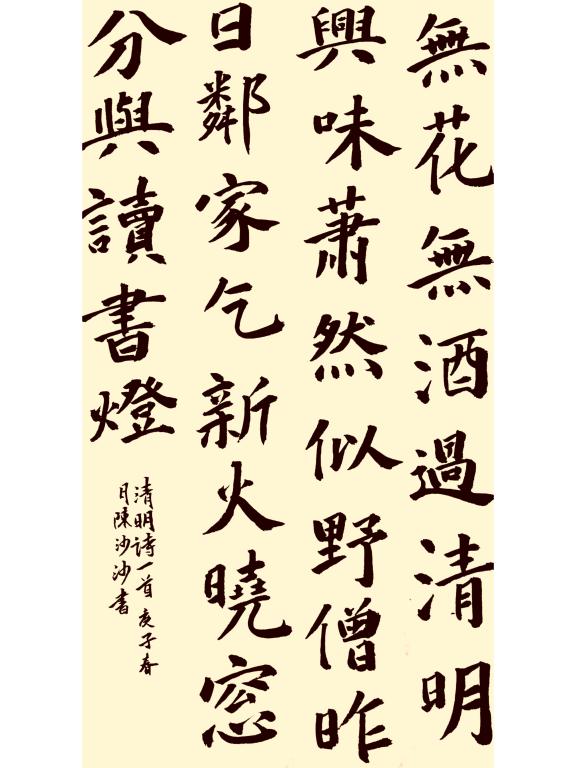 無花無酒過清明
興味蕭然似野僧昨
日鄰家乞新火曉窓
分與讀書燈
清明詩一首亥子春
月陳沙沙書